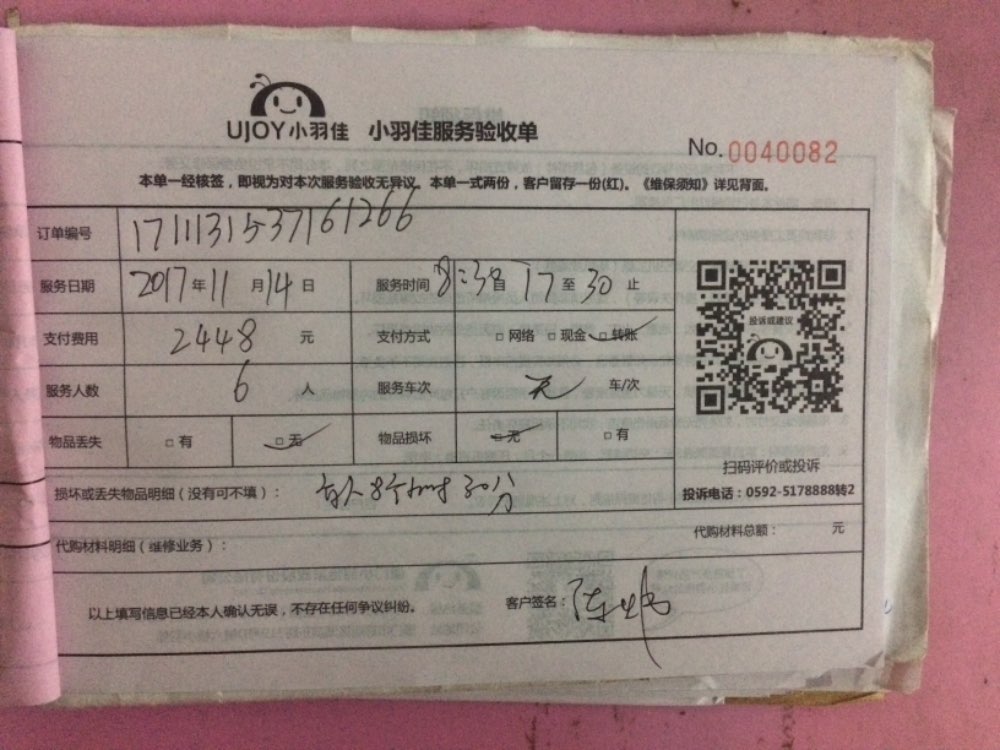 UJOY小羽佳 小羽佳服务验收单
No. 0040082
本单一经核签，即视为对本次服务验收无异议。本单一式两份，客户留存一份(红)。《维保须知》详见背面。
订单编号 1711131537161266
服务日期 2017年11月14日 服务时间 8:30自 17至30止
支付费用 2448 元 支付方式 □网络 □现金 □转账
投诉或建议
服务人数 6 人 服务车次 无 车/次
物品丢失 □有 □无 物品损坏 □无 □有
扫码评价或投诉
损坏或丢失物品明细（没有可不填）： 每人8个小时30分
投诉电话：0592-5178888转2
代购材料明细（维修业务）： 代购材料总额： 元
以上填写信息已经本人确认无误，不存在任何争议纠纷。 客户签名：